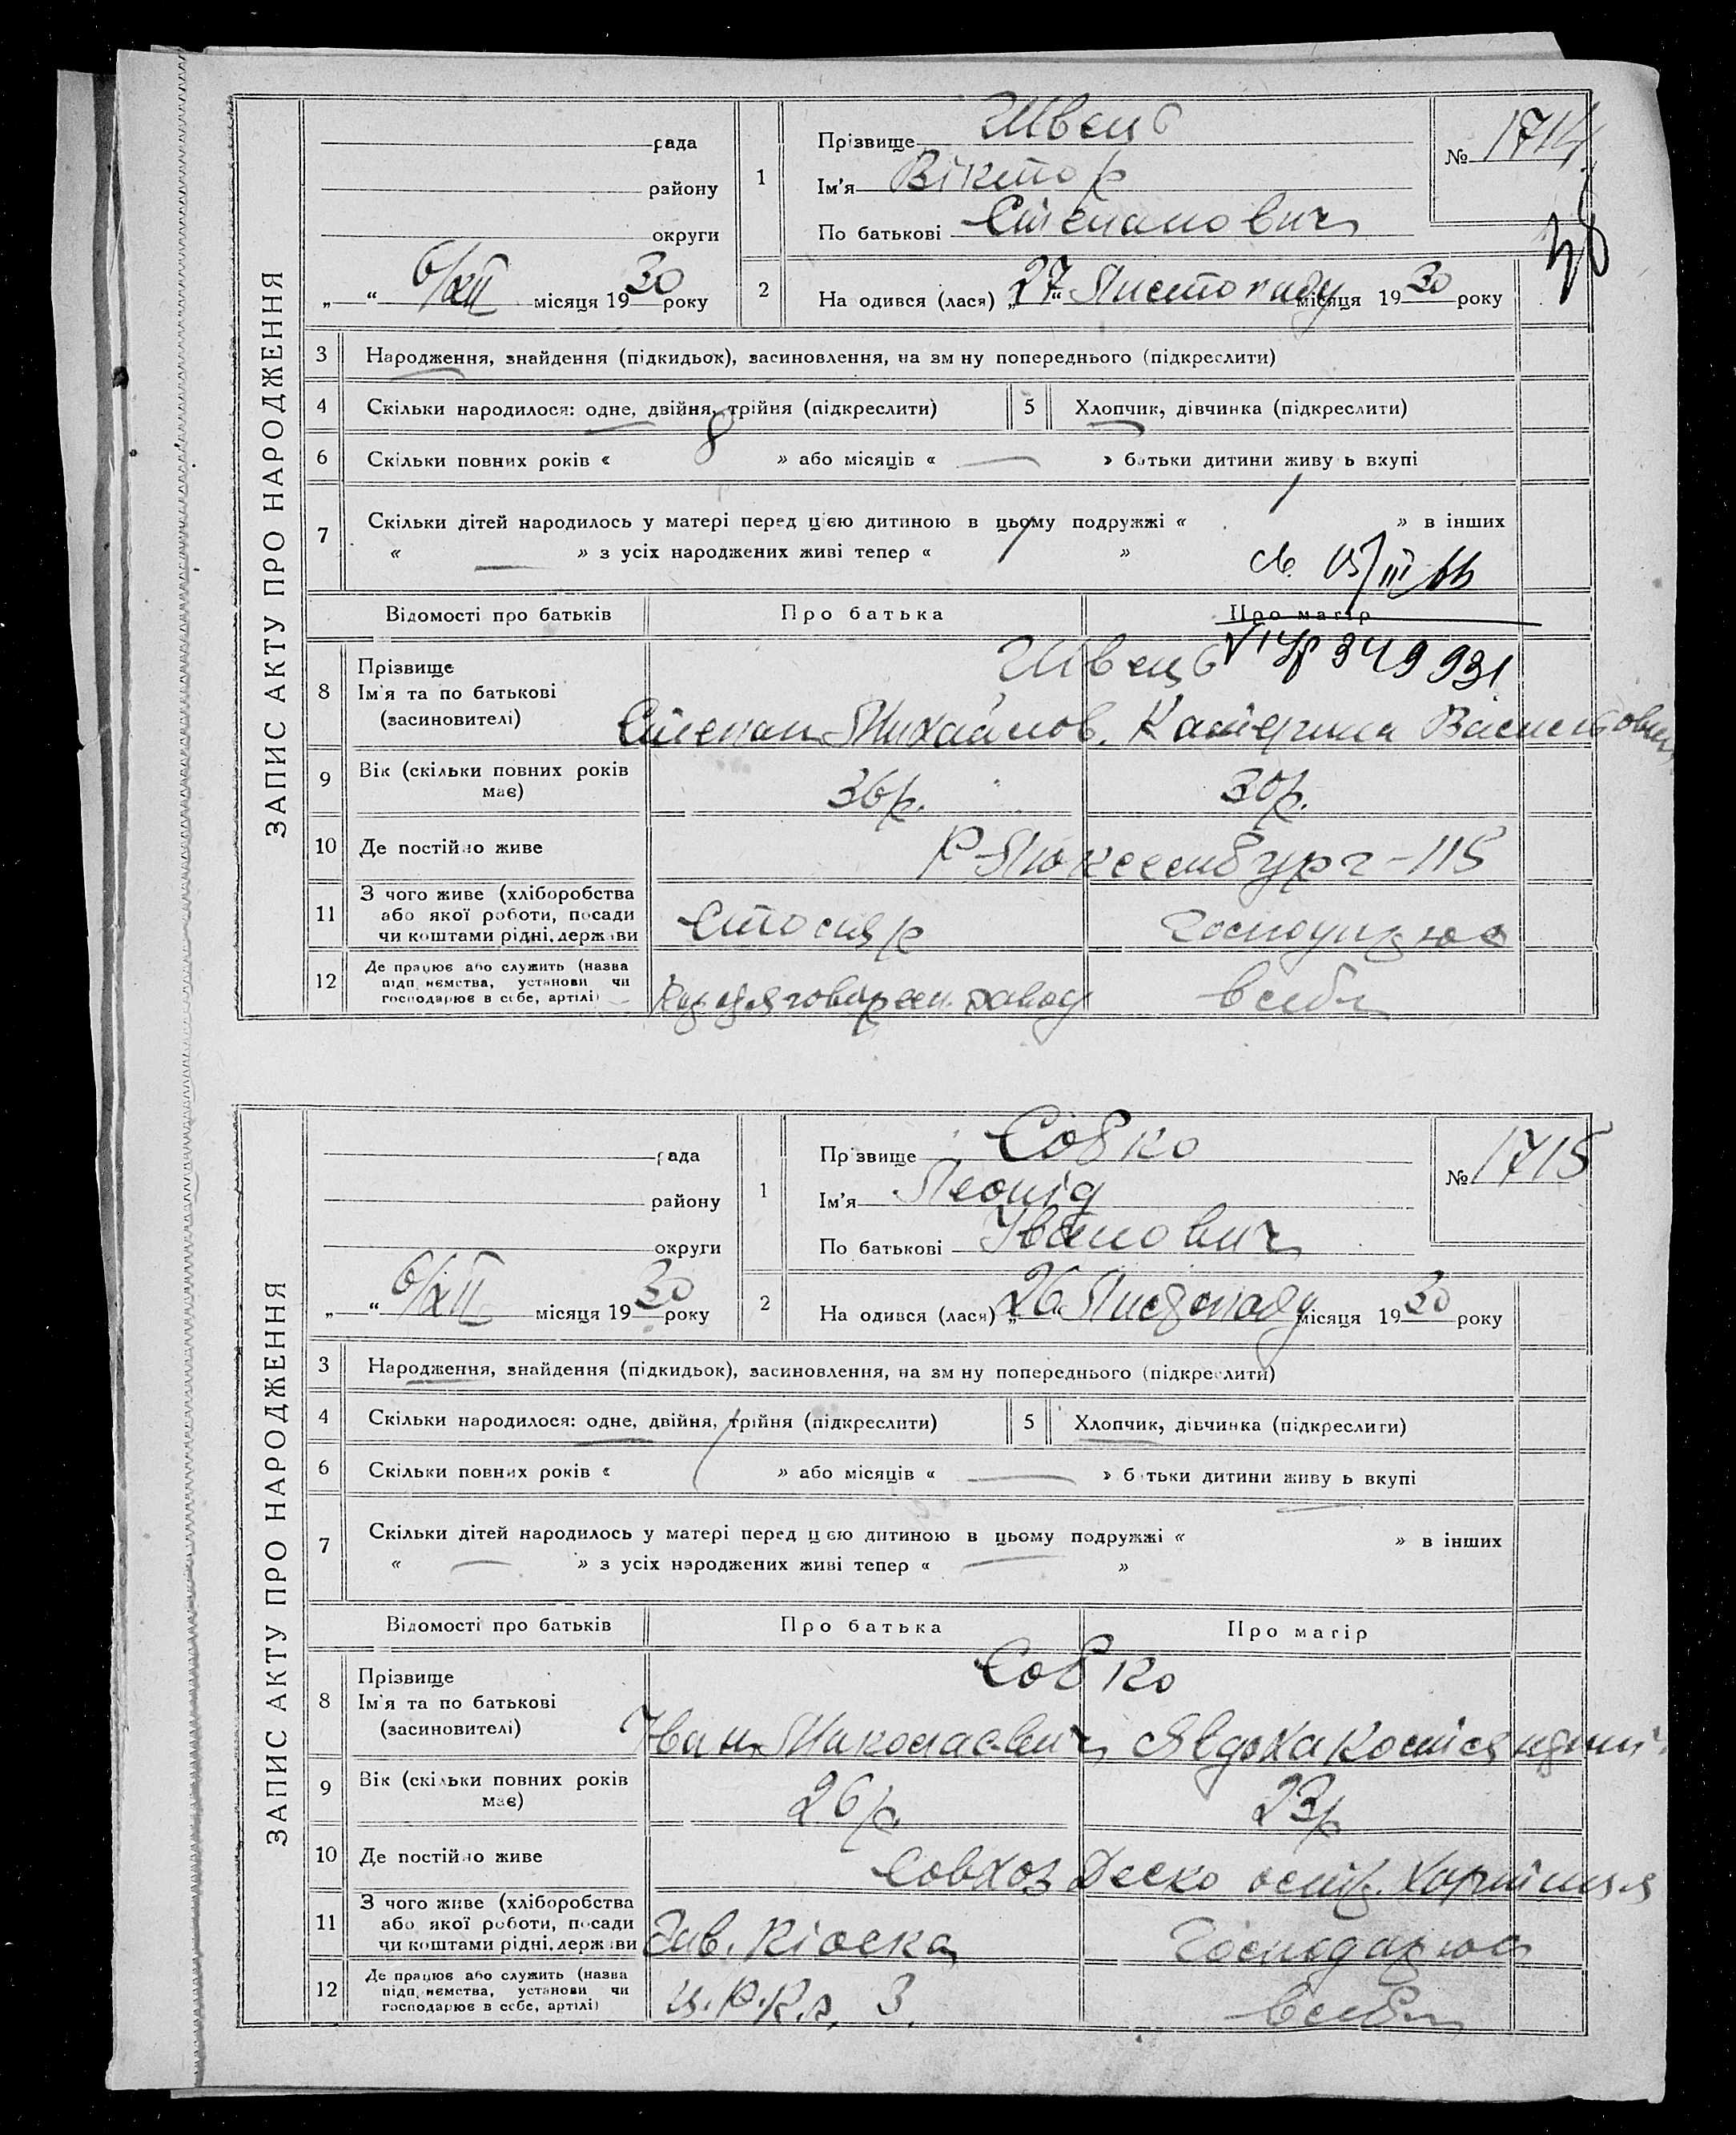 ЗАПИС АКТУ ПРО НАРОДЖЕННЯ
рада
району
округи
„ “ 6/XII місяця 1930 року
1
Прізвище Швець
Ім'я Віктор
По батькові Степанович
№ 1714
2
На одився (лася) „27“ Листопаду місяця 1930 року
3 Народження, знайдення (підкидьок), засиновлення, на зм ну попереднього (підкреслити)
4 Скільки народилося: одне, двійня, трійня (підкреслити) 5 Хлопчик, дівчинка (підкреслити)
6 Скільки повних років « 8 » або місяців « — » батьки дитини живу ь вкупі
7 Скільки дітей народилось у матері перед цією дитиною в цьому подружжі « 1 » в інших
« — » з усіх народжених живі тепер « 1 »
349931
Відомості про батьків Про батька Про матір
8 Прізвище
Ім'я та по батькові
(засиновителі)
Швець
Степан Михайлов. Катерина
9 Вік (скільки повних років
має)
36р. 30р.
10 Де постійно живе
Р-Люксембург-115
11 З чого живе (хліборобства
або якої роботи, посади
чи коштами рідні, держави
Столяр
12 Де працює або служить (назва
підп иємства, установи чи
господарює в себе, артілі)
в себе
ЗАПИС АКТУ ПРО НАРОДЖЕННЯ
рада
району
округи
„ “ 6/XII місяця 1930 року
1
Пр звище Собко
Ім'я Леонід
По батькові Іванович
№ 1715
2
На одився (лася) „26 Листопаду місяця 1930 року
3 Народження, знайдення (підкидьок), засиновлення, на зм ну попереднього (підкреслити)
4 Скільки народилося: одне, двійня, трійня (підкреслити) 5 Хлопчик, дівчинка (підкреслити)
6 Скільки повних років « 1 » або місяців « — » б тьки дитини живу ь вкупі
7 Скільки дітей народилось у матері перед ц єю дитиною в цьому подружжі « — » в інших
« — » з усіх народжених живі тепер « — »
Відомості про батьків Про батька Про матір
8 Прізвище
Ім'я та по батькові
(засиновителі)
Собко
Іван Миколаєвич Явдоха
9 Вік (скільки повних років
має)
26р. 23р
10 Де постійно живе
Совхоз
11 З чого живе (хліборобства
або якої роботи, посади
чи коштами рідні, держави
Зав. Кіоска Господарює
12 Де працює або служить (назва
підп иємства, установи чи
господарює в себе, артілі)
в себе